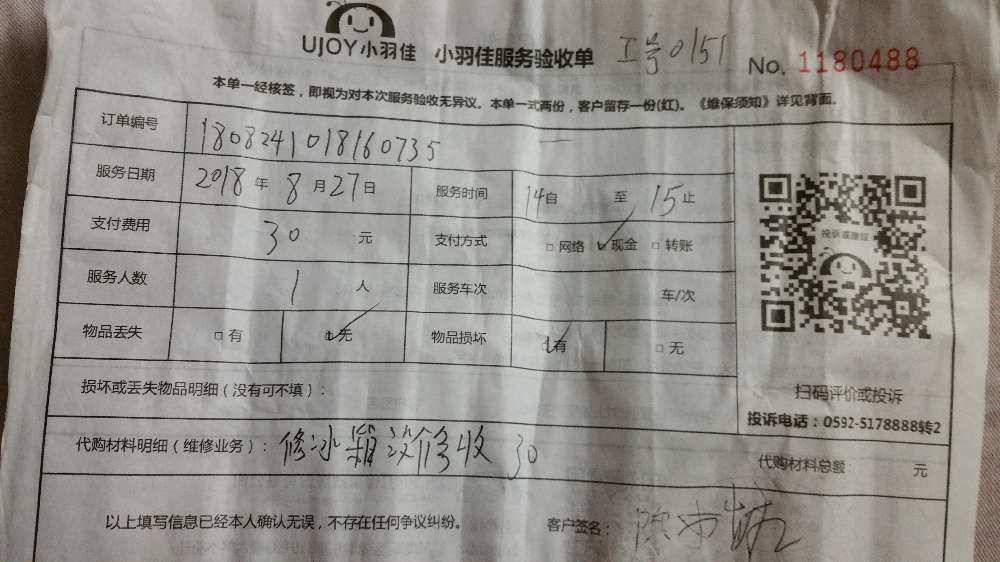 UJOY小羽佳 小羽佳服务验收单 工号0151 No. 1180488
本单一经核签，即视为对本次服务验收无异议。本单一式两份，客户留存一份(红)。《维保须知》详见背面。
订单编号 1808241018160735
服务日期 2018年8月27日 服务时间 14自 至 15止
支付费用 30 元 支付方式 □网络 ☑现金 □转账
投诉或建议
服务人数 1 人 服务车次 车/次
物品丢失 □有 ☑无 物品损坏 ☑有 □无
损坏或丢失物品明细（没有可不填）：
扫码评价或投诉
投诉电话：0592-5178888转2
代购材料明细（维修业务）： 修冰箱没修收30 代购材料总额： 元
以上填写信息已经本人确认无误，不存在任何争议纠纷。 客户签名： 陈